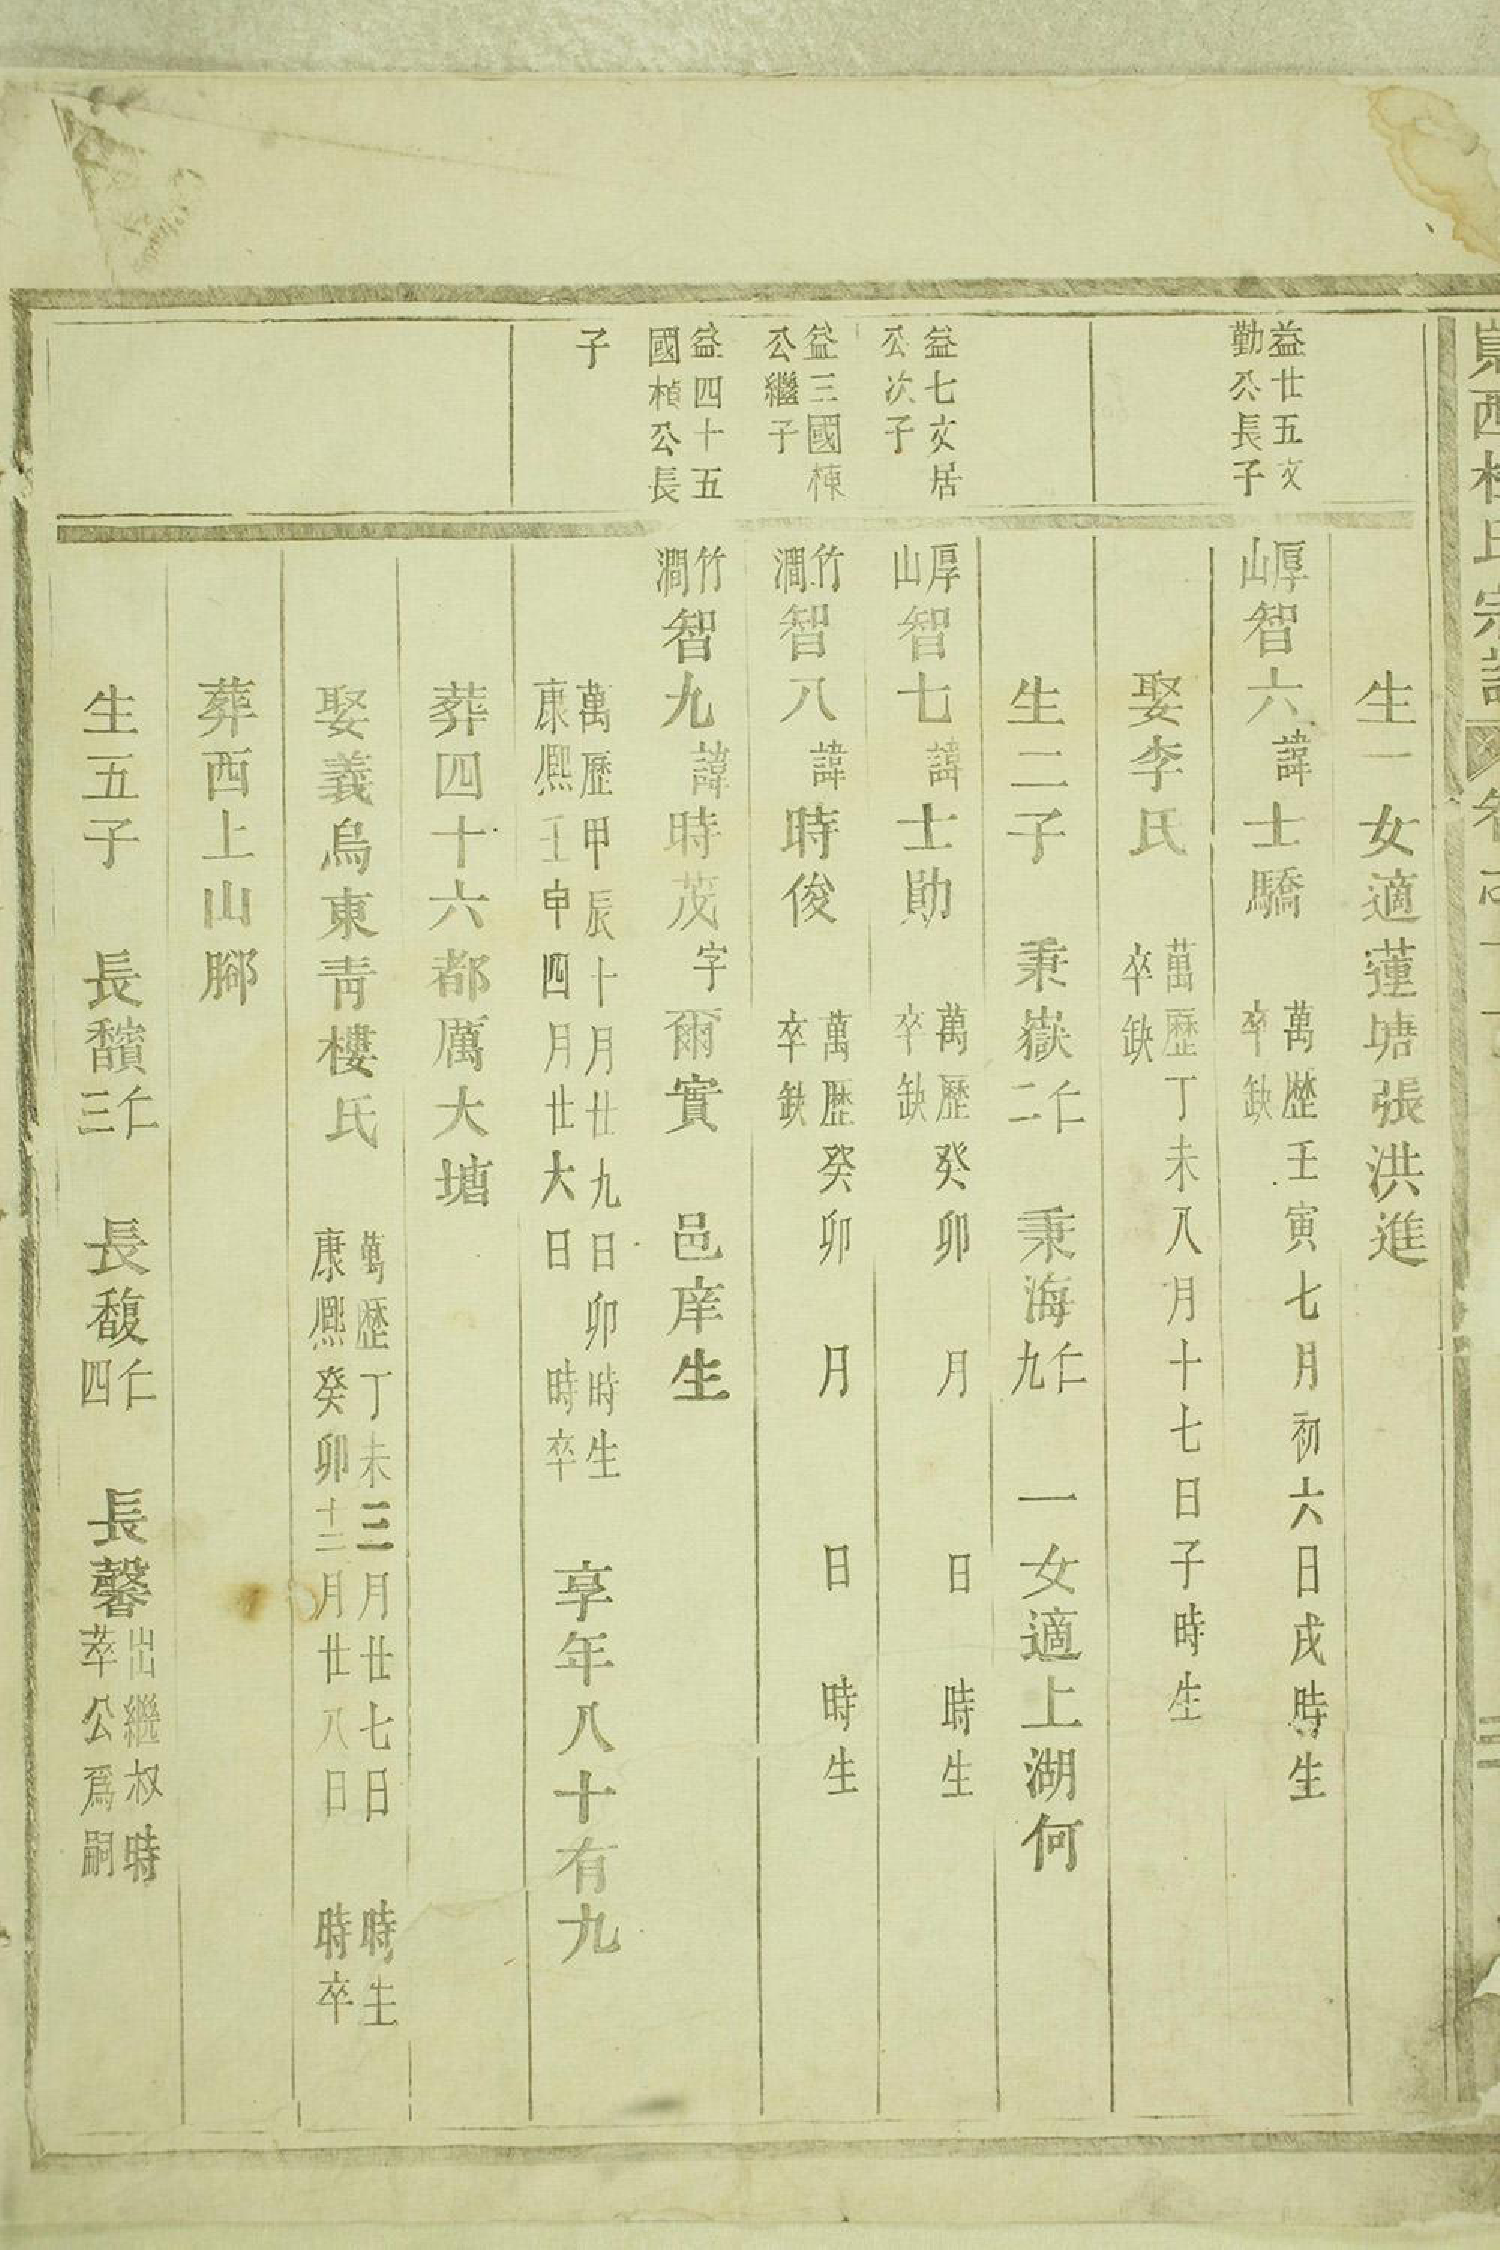 西杜氏宗譜
生一女適蓮塘張洪進
益廿五文勤公長子
厚山智六諱士驕 萬歷壬寅七月初六日戌時生 卒缺
娶李氏 萬歷丁未八月十七日子時生 卒缺
生二子 秉嶽仁二 秉海仁九 一女適上湖何
益七文居公次子
厚山智七諱士勛 萬歷癸卯 月 日 時生 卒缺
益三國棟公繼子
竹澗智八諱時俊 萬歷癸卯 月 日 時生 卒缺
益四十五國楨公長子
竹澗智九諱時茂字爾實 邑庠生
萬歷甲辰十月廿九日卯時生 康熙壬申四月廿大日 時卒 享年八十有九
葬四十六都厲大塘
娶義烏東靑樓氏 萬歷丁未三月廿七日 時生 康熙癸卯十二月廿八日 時卒
葬西上山腳
生五子 長馩仁三 長馥仁四 長馨出繼叔時萃公爲嗣